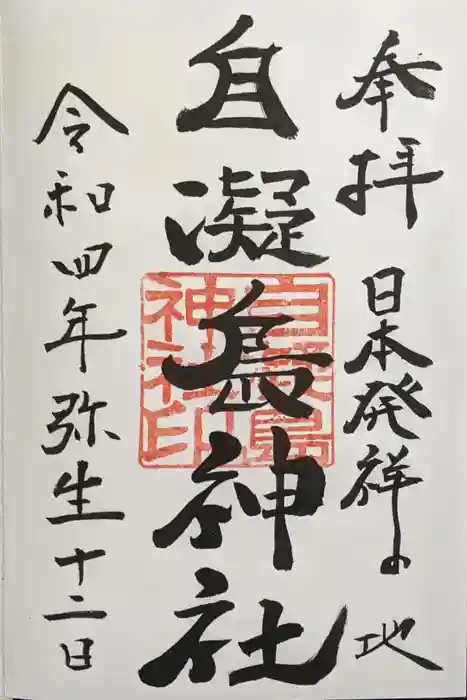 奉拝 日本発祥の地
自凝島神社
自凝島
神社印
令和四年弥生十二日